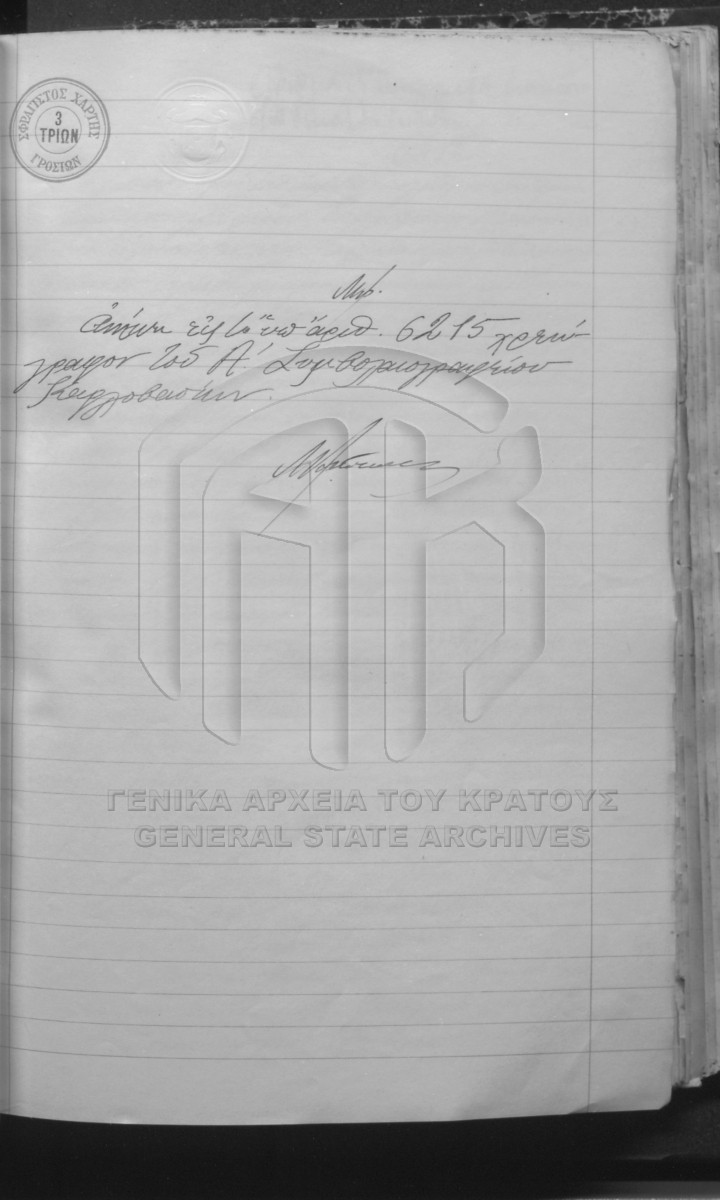 ΣΦΡΑΓΙΣΤΟΣ ΧΑΡΤΗΣ
3
ΤΡΙΩΝ
ΓΡΟΣΙΩΝ
Ἀνήκει εἰς τὸ ὑπ' ἀριθ. 6215 χρεώ-
γραφον τοῦ Α! Συμβολαιογραφείου
Καρλοβασίων.
ΓΕΝΙΚΑ ΑΡΧΕΙΑ ΤΟΥ ΚΡΑΤΟΥΣ
GENERAL STATE ARCHIVES